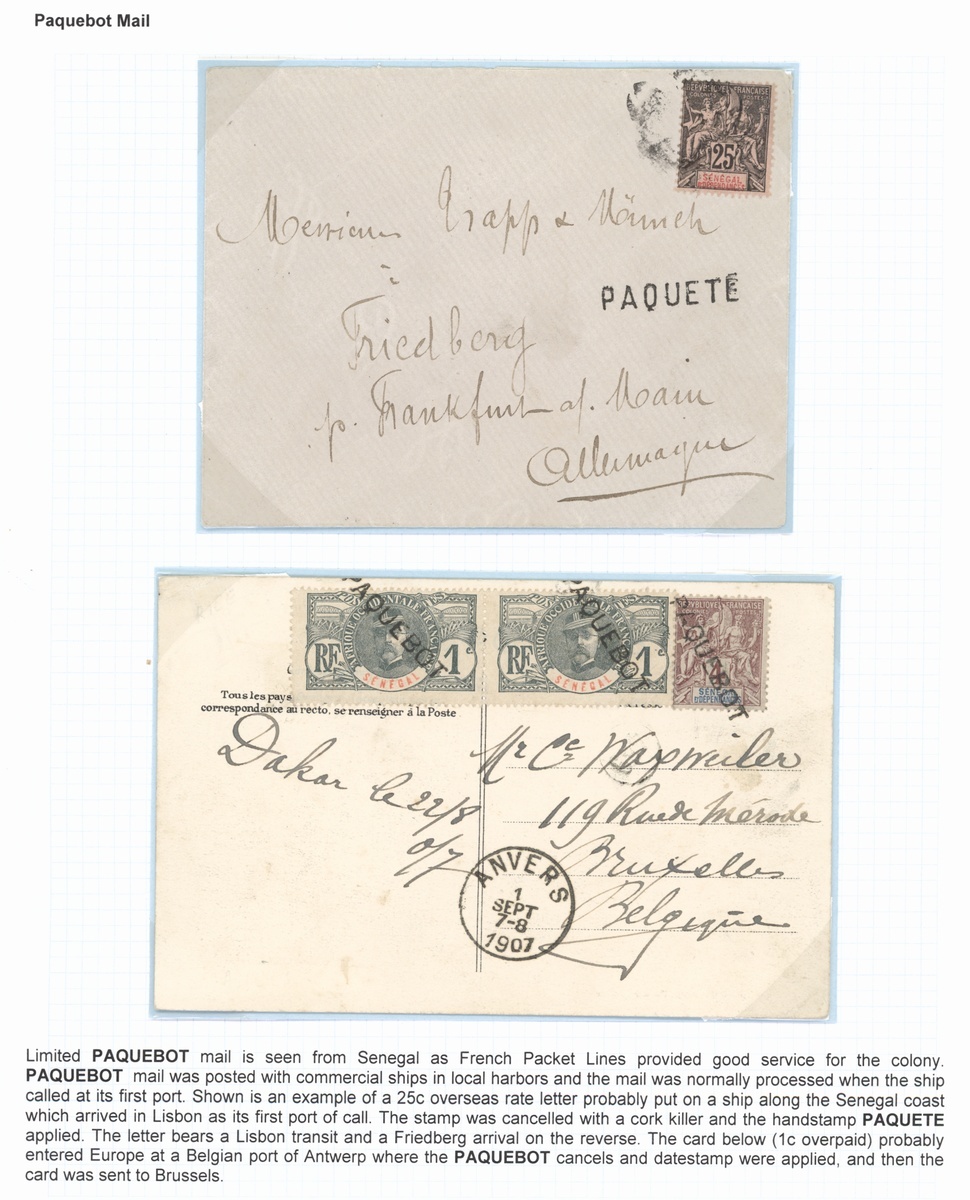 Paquebot Mail
REPUBLIQUE FRANÇAISE
COLONIES POSTES
25
SENEGAL
Messieurs Trapp & Münch
PAQUETE
à
Friedberg
p. Frankfurt a/. Main
Allemagne
PAQUEBOT PAQUEBOT
AFRIQUE OCCIDENTALE FRANÇAISE
RF 1c RF 1c
SENEGAL SENEGAL
PAQUEBOT
Tous les pays
correspondance au recto, se renseigner à la Poste
Dakar le 22/8
0/7
Mr Ce Waxweiler
119 Rue de Mérode
Bruxelles
Belgique
ANVERS
1
SEPT
7-8
1907
Limited PAQUEBOT mail is seen from Senegal as French Packet Lines provided good service for the colony.
PAQUEBOT mail was posted with commercial ships in local harbors and the mail was normally processed when the ship
called at its first port. Shown is an example of a 25c overseas rate letter probably put on a ship along the Senegal coast
which arrived in Lisbon as its first port of call. The stamp was cancelled with a cork killer and the handstamp PAQUETE
applied. The letter bears a Lisbon transit and a Friedberg arrival on the reverse. The card below (1c overpaid) probably
entered Europe at a Belgian port of Antwerp where the PAQUEBOT cancels and datestamp were applied, and then the
card was sent to Brussels.